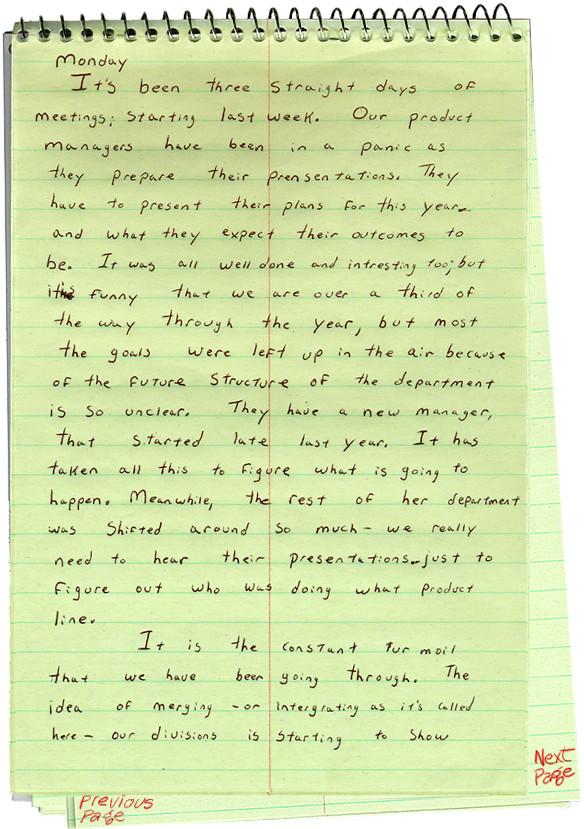 Monday
It's been three straight days of
meetings; starting last week. Our product
managers have been in a panic as
they prepare their prensentations. They
have to present their plans for this year-
and what they expect their outcomes to
be. It was all well done and intresting too; but
it's funny that we are over a third of
the way through the year, but most
the goals were left up in the air because
of the future structure of the department
is so unclear. They have a new manager,
that started late last year. It has
taken all this to figure what is going to
happen. Meanwhile, the rest of her department
was shifted around so much - we really
need to hear their presentations - just to
figure out who was doing what product
line.
It is the constant turmoil
that we have been going through. The
idea of merging - or intergrating as it's called
here - our divisions is starting to show
Next
Page
Previous
Page